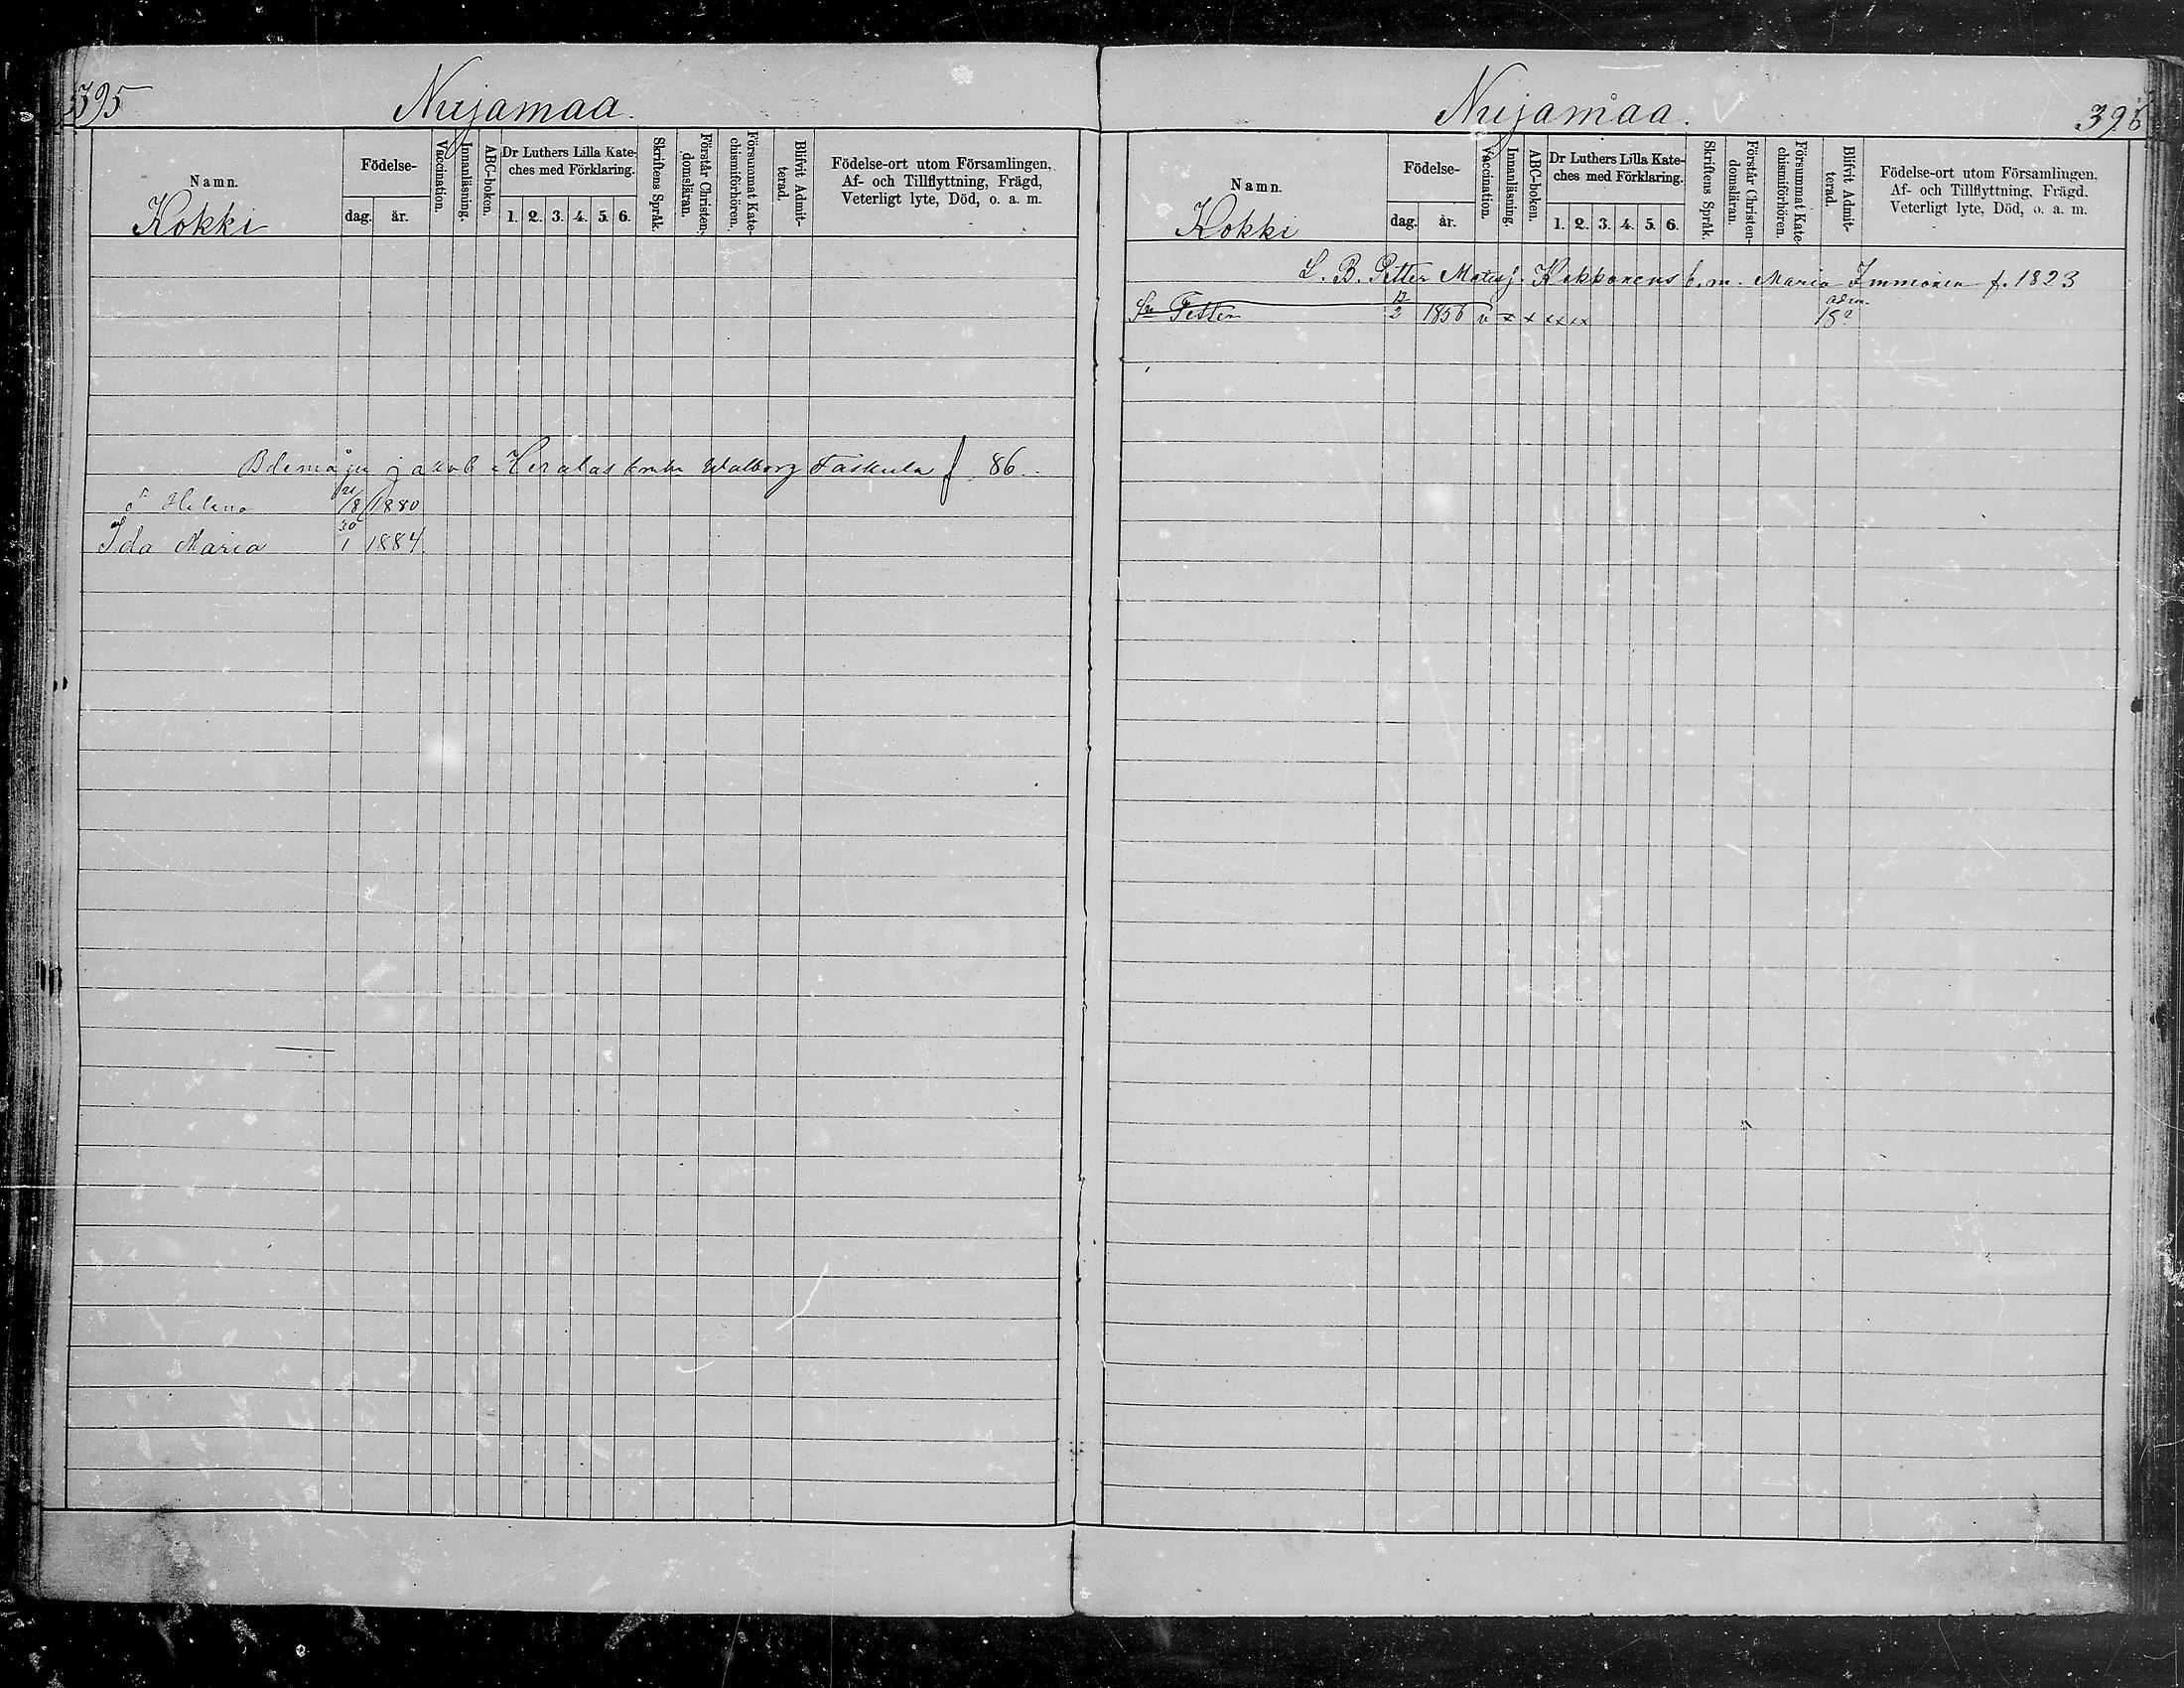 395
Nuijamaa.
Namn.
Kokki
Födelse-
dag.
år.
Vaccination.
Innanläsning.
ABC-boken.
Dr Luthers Lilla Kate-
ches med Förklaring.
1. 2. 3. 4. 5. 6.
Skriftens Språk.
Förstår Christen-
domsläran.
Försummat Kate-
chismiförhören.
Blifvit Admit-
terad.
Födelse-ort utom Församlingen,
Af- och Tillflyttning, Frägd,
Veterligt lyte, Död, o. a. m.
Jakob Walborg f 86
Helena 1880
Ida Maria 30 1 1884
Nuijamaa.
396
Namn.
Kokki
Födelse-
dag.
år.
Vaccination.
Innanläsning.
ABC-boken.
Dr Luthers Lilla Kate-
ches med Förklaring.
1. 2. 3. 4. 5. 6.
Skriftens Språk.
Förstår Christen-
domsläran.
Försummat Kate-
chismiförhören.
Blifvit Admit-
terad.
Födelse-ort utom Församlingen,
Af- och Tillflyttning, Frägd,
Veterligt lyte, Död, o. a. m.
L. B. Petter Matss. Kokkonens b. m. Maria Immonen f. 1823
Sn Petter 12 2 1856 v x x xx xx adm.